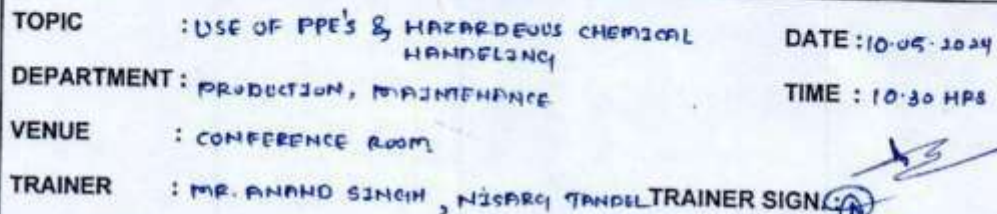 TOPIC : USE OF PPE'S & HAZARDEOUS CHEMICAL
HANDELING
DATE : 10.05.2024
DEPARTMENT : PRODUCTION, MAINTENANCE
TIME : 10.30 HRS
VENUE : CONFERENCE ROOM
TRAINER : MR. ANAND SINGH, NISARG TANDEL TRAINER SIGN.